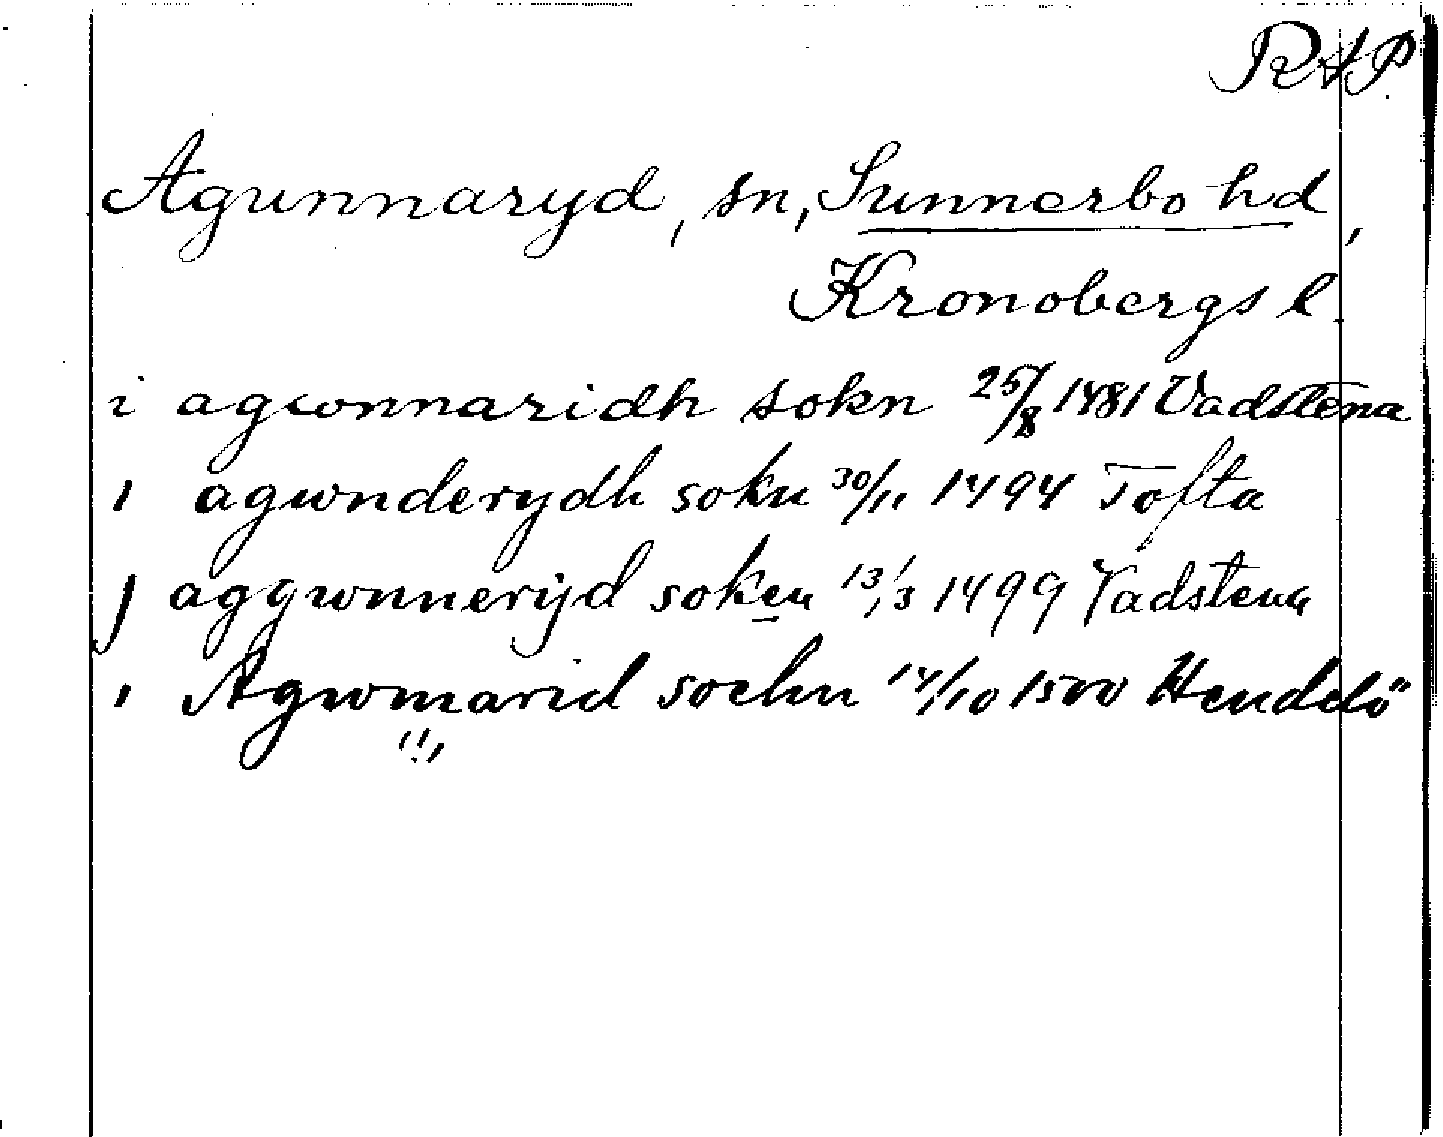 RAP
Agunnaryd, sn, Sunnerbo hd,
Kronobergs l.
i agwnnaridh sokn 25/8 1481 Vadstena
i agwnderydh sokn 30/11 1494 Tofta
j aggwnnerijd soken 13/3 1499 Vadstena
i Agwmarid sochn 14/10 1500 Hendelö
"!,